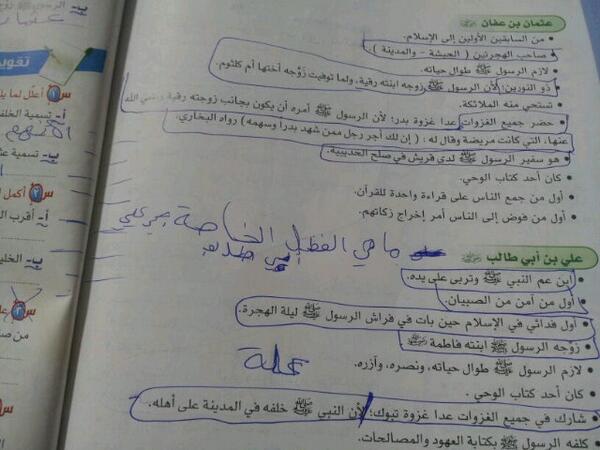 عثمان بن عفان
من السابقين الأولين إلى الإسلام.
صاحب الهجرتين ( الحبشة - والمدينة )
لازم الرسول ﷺ طوال حياته.
ذو النورين: لأن الرسول ﷺ زوجه ابنته رقية، ولما توفيت زوَّجه أختها أم كلثوم.
تستحي منه الملائكة.
حضر جميع الغزوات عدا غزوة بدر؛ لأن الرسول ﷺ أمره أن يكون بجانب زوجته رقية رضي الله
عنها، التي كانت مريضة وقال له : ( إن لك أجر رجل ممن شهد بدراً وسهمه ) رواه البخاري.
هو سفير الرسول ﷺ لدى قريش في صلح الحديبية.
كان أحد كتاب الوحي.
أول من جمع الناس على قراءة واحدة للقرآن.
أول من فوض إلى الناس أمر إخراج زكاتهم.
ما هي الفظل الخاصة
علي بن أبي طالب
ابن عم النبي ﷺ وتربى على يده.
أول من آمن من الصبيان.
أول فدائي في الإسلام حين بات في فراش الرسول ﷺ ليلة الهجرة.
زوَّجه الرسول ﷺ ابنته فاطمة
لازم الرسول ﷺ طوال حياته، ونصره، وآزره.
كان أحد كتاب الوحي .
علة
شارك في جميع الغزوات عدا غزوة تبوك؛ لأن النبي ﷺ خلفه في المدينة على أهله.
كلفه الرسول ﷺ بكتابة العهود والمصالحات.
ب- الرسول
تقويم
س١ أعلل لما
أ- تسمية الخلفاء
ب- تسمية
س٢ أكمل
أ- أقرب
ب- الخلي